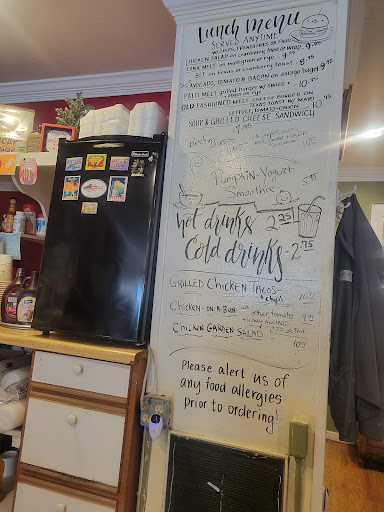 Lunch Menu
SERVED ANYTIME
w/ CHIPS, FRENCH FRIES OR FRUIT
CHICKEN SALAD on cranberry toast or wrap 9.95
TUNA MELT on multigrain or rye 9.95
BLT on texas or cranberry toast 8.95
AVOCADO, TOMATO & BACON on asiago bagel 9.95
PATTI MELT grilled burger w/ swiss on rye 10.95
OLD FASHIONED MELT CHEESE BURGER ON
TEXAS TOAST W/ MAYO
LETTUCE, TOMATO + ONION 10.95
SOUP & GRILLED CHEESE SANDWICH
7.95
Pumpkin-Yogurt
Smoothie 5.95
hot drinks 2.25
Cold drinks - 2.75
GRILLED CHICKEN TACOS
+ chips
CHICKEN-ON-A-BUN
CHICKEN GARDEN SALAD
Please alert us of
any food allergies
prior to ordering!